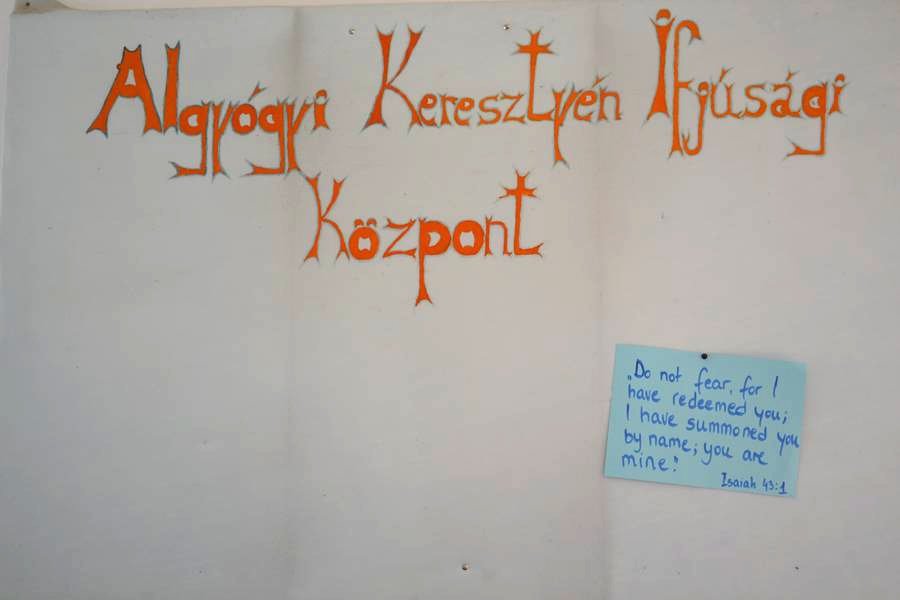 Algyógyi Keresztyén Ifjúsági
Központ
„Do not fear, for I
have redeemed you;
I have summoned you
by name; you are
mine."
Isaiah 43:1